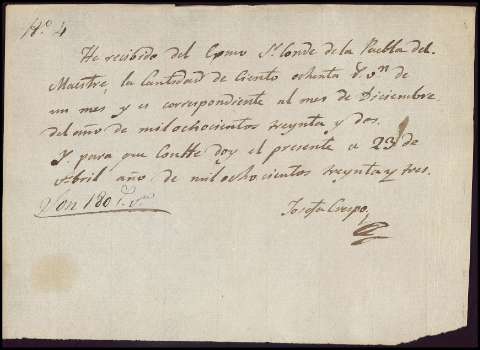 Nº 4
He recibido del Exmo Sr Conde de la Puebla del
Maestre, la Cantidad de Ciento ochenta rs vn de
un mes y es correspondiente al mes de Diciembre
del año de mil ochocientos treynta y dos.
Y para que Conste doy el presente a 23 de
Abril año de mil ochocientos treynta y tres.
Son 180 rs vn
Josefa Crespo